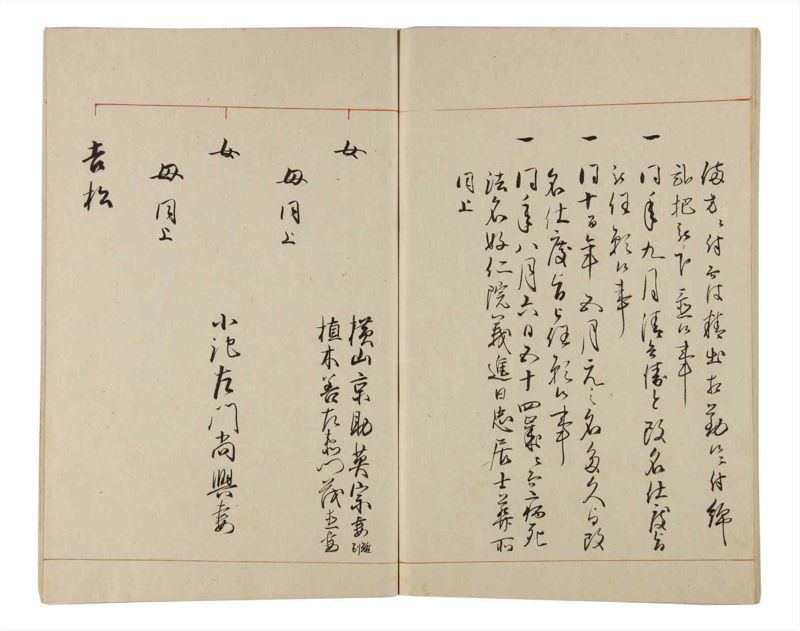 後方ニ付而は精出相勤候ニ付縮
紬把被下置候事
一 同年九月清兵衛と改名仕度旨
被任願候事
一 同十四年五月元之名多久与改
名仕度旨被任願候事
一 同年八月六日五十四歳ニ而病死
法名好仁院義進日忠居士葬所
同上
女 横山京助英宗妻離別
植木善左衛門茂直妻
母同上
女
小沱左門尚興妻
母同上
吉松